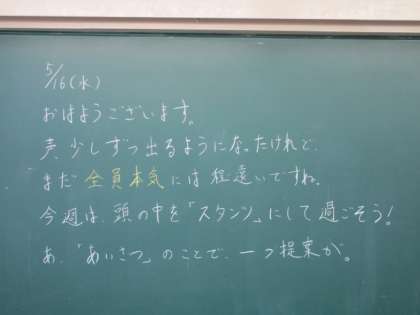 5/16(水)
おはようございます。
声、少しずつ出るようになったけれど、
まだ全員本気には程遠いですね。
今週は、頭の中を「スタンツ」にして過ごそう!
あ、「あいさつ」のことで、一つ提案が。